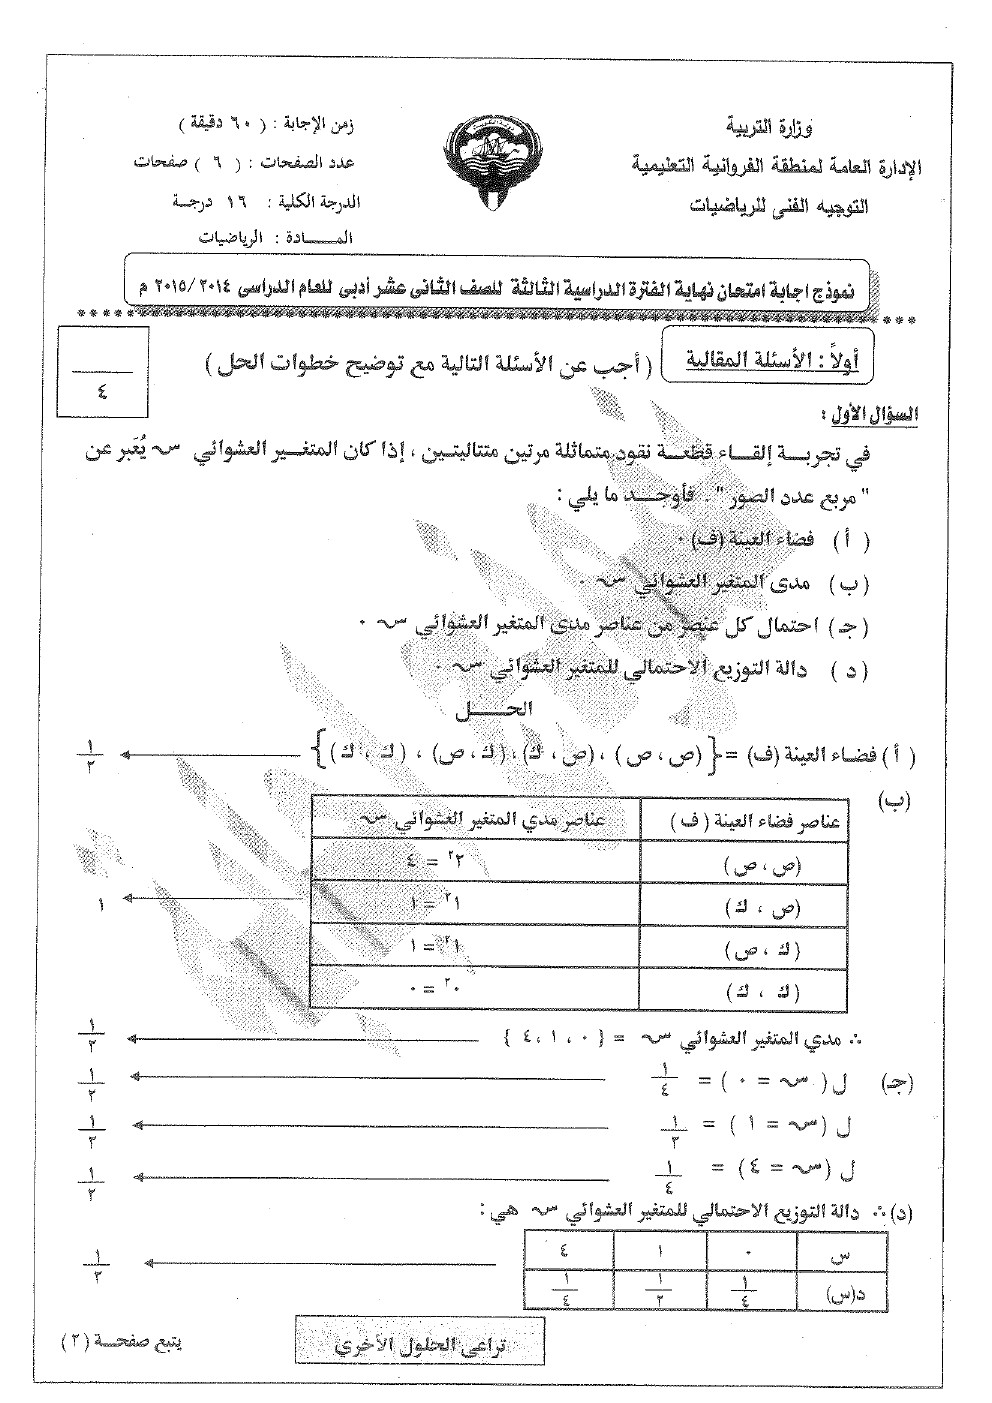 وزارة التربية
الإدارة العامة لمنطقة الفروانية التعليمية
التوجيه الفنى للرياضيات
زمن الإجابة : ( ٦٠ دقيقة )
عدد الصفحات : ( ٦ ) صفحات
الدرجة الكلية : ١٦ درجة
المـــادة : الرياضيات
نموذج اجابة امتحان نهاية الفترة الدراسية الثالثة للصف الثانى عشر أدبى للعام الدراسى ٢٠١٤/ ٢٠١٥ م
أولاً : الأسئلة المقالية ( أجب عن الأسئلة التالية مع توضيح خطوات الحل )
٤
السؤال الأول :
في تجربــة إلقــاء قطعــة نقود متماثلة مرتين متتاليتــين ، إذا كان المتغـير العشوائي سـ يُعَبر عن
" مربع عدد الصور " . فأوجــد ما يلي :
( أ ) فضاء العينة (ف) ٠
(ب) مدى المتغير العشوائي سـ ٠
(جـ) احتمال كل عنصر من عناصر مدى المتغير العشوائي سـ ٠
( د ) دالة التوزيع الاحتمالي للمتغير العشوائي سـ ٠
الحـــل
( أ ) فضـاء العينة (ف) = { (ص ، ص) ، (ص ، ك) ، (ك ، ص) ، (ك ، ك) } ١/٢
(ب)
عناصر فضاء العينة ( ف ) عناصر مدي المتغير العشوائي سـ
(ص ، ص) ٢² = ٤
(ص ، ك) ١² = ١ ١
(ك ، ص) ١² = ١
(ك ، ك) ٠² = ٠
∴ مدي المتغير العشوائي سـ = { ٠ ، ١ ، ٤ } ١/٢
(جـ) ل ( سـ = ٠ ) = ١/٤ ١/٢
ل ( سـ = ١ ) = ١/٢ ١/٢
ل ( سـ = ٤ ) = ١/٤ ١/٢
(د) ∴ دالة التوزيع الاحتمالي للمتغير العشوائي سـ هي :
س ٠ ١ ٤
د(س) ١/٤ ١/٢ ١/٤ ١/٢
تراعى الحلول الأخرى
يتبع صفحـة (٢)